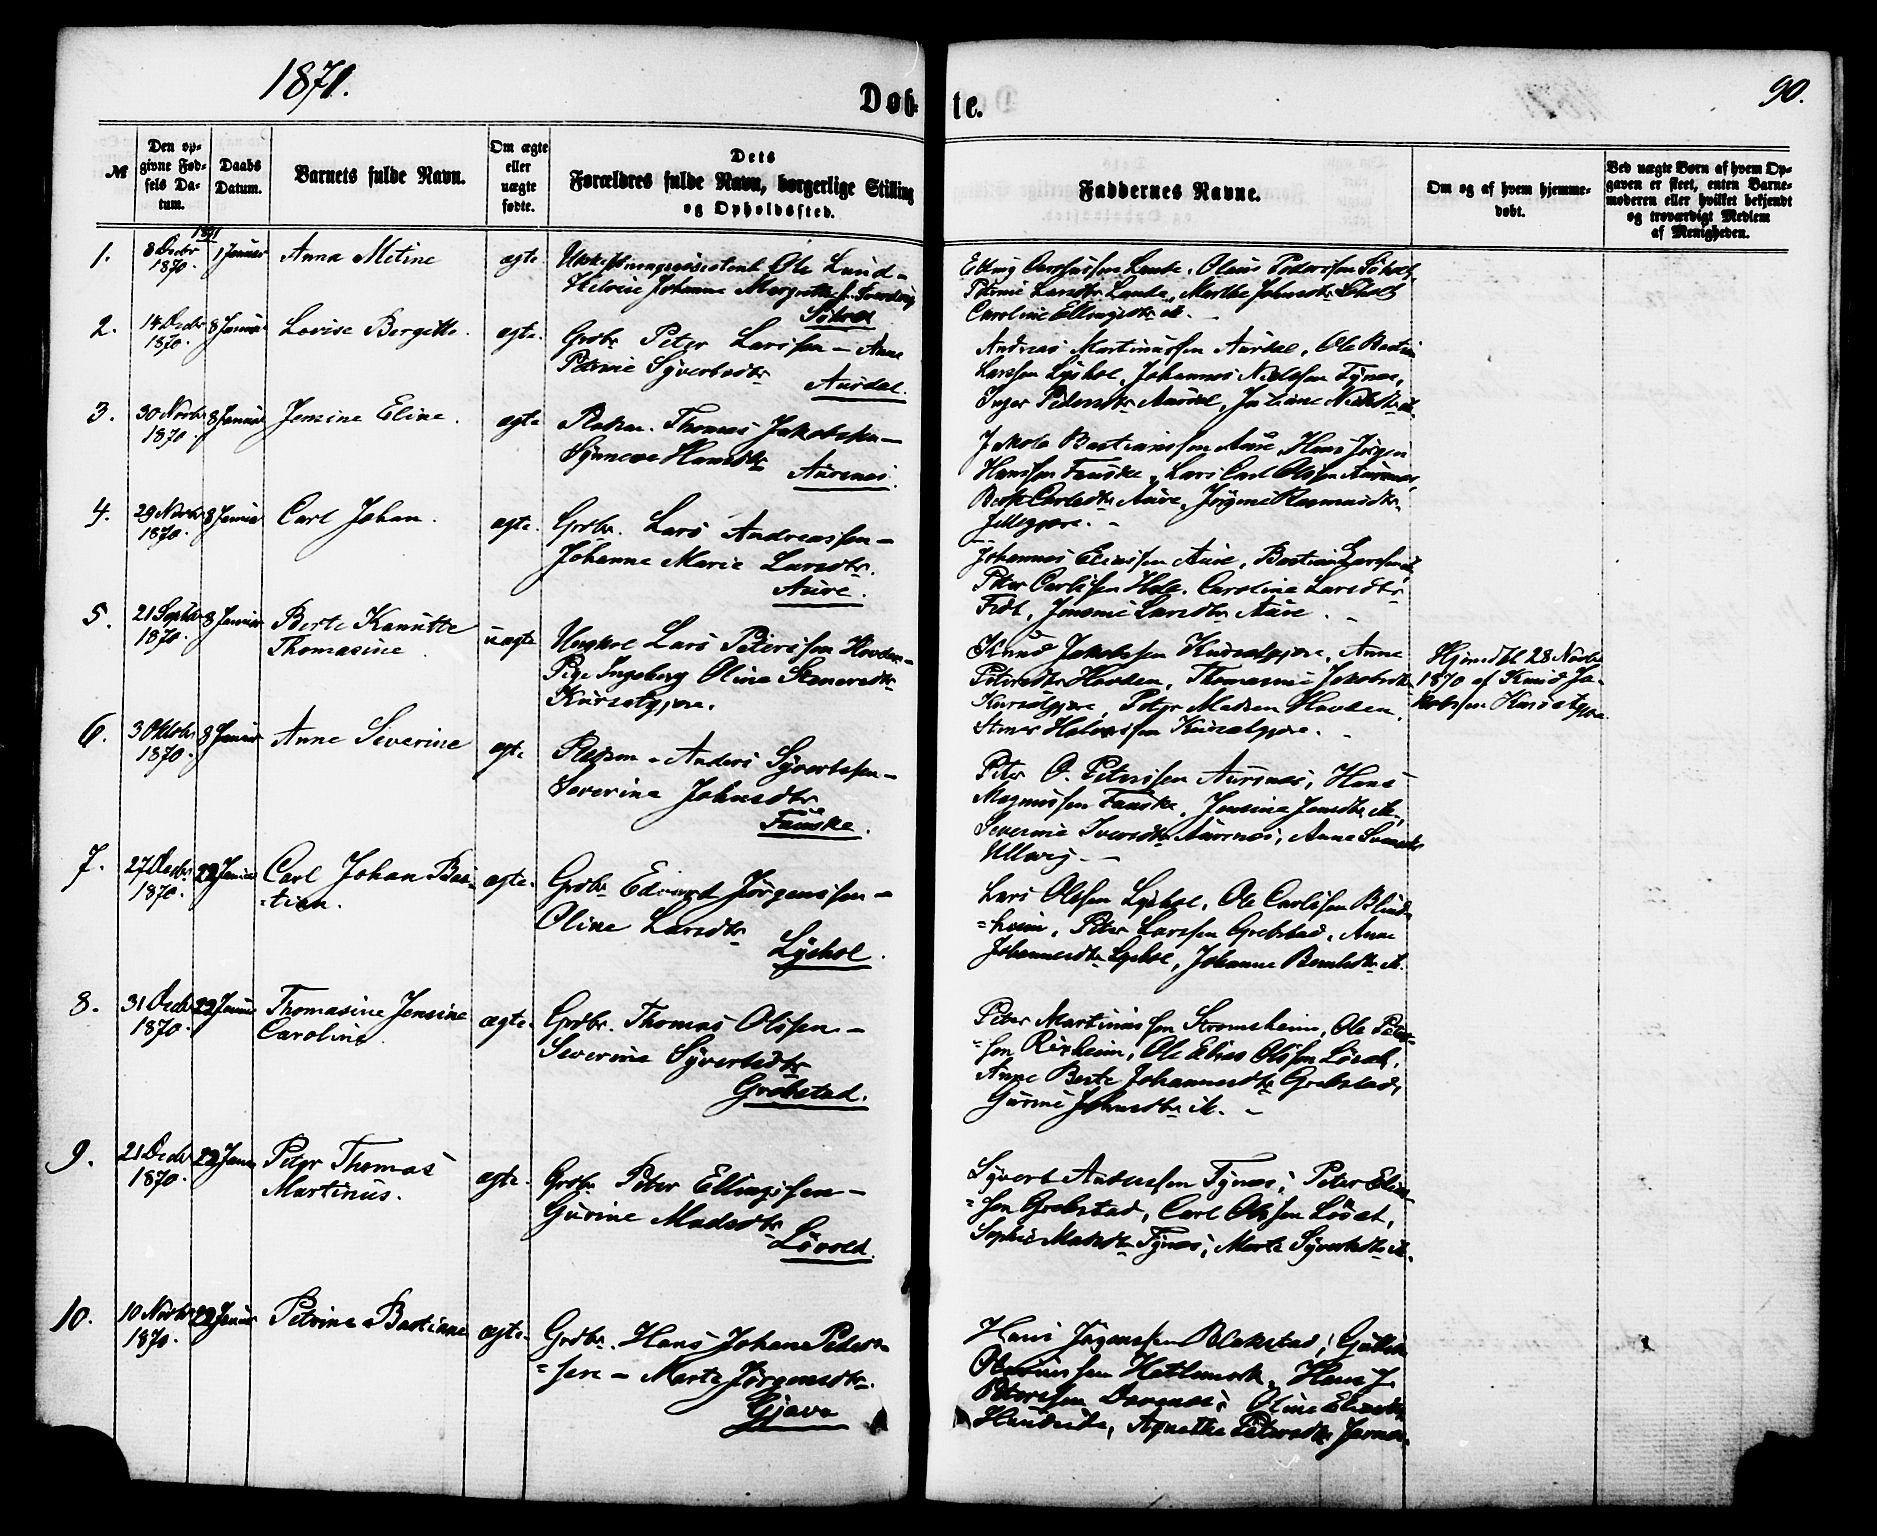 1871.
Døb-
te.
90.
№
Den op-
givne Fød-
sels Da-
tum.
Daabs
Datum.
Barnets fulde Navn.
Om ægte
eller
uægte
fødte.
Dets
Forældres fulde Navn, borgerlige Stilling
og Opholdssted.
Faddernes Navne.
Om og af hvem hjemme-
døbt.
Ved uægte Børn af hvem Op-
gaven er skeet, enten Barne-
moderen eller hvilket bekjendt
og troværdigt Medlem
af Menigheden.
1.
8 Decbr
1870.
1871
1 Januar
Anna Metine
ægte.
Ole Lund -
Johanna Margrethe
Elling Lande, Olaus Pedersen
Petrine Larsdtr Lande, Marthe Johnsdtr
Caroline Ellingsdtr
2.
14 Decbr
1870.
8 Januar
Lovise Bergitte.
ægte.
Grdbr Peter Larssen - Anne
Petrine Syvertsdtr
Aursdal.
Andreas Martinussen Aursdal, Ole Bastian
Larssen Lyshol, Johannes Nielssen Tynes,
Inger Petersdtr Aursdal,
3.
30 Novbr
1870.
8 Januar
Jensine Eline.
ægte
Pladsm. Thomas Jakobssen -
Synneve Hansdtr
Aursnes.
Jakob Bastianssen Aure, Hans Jörgen
Hanssen Fauske, Lars Carl Olssen Aursnes,
Berte Carlsdtr Aure, Jörgine Rasmusdtr
4.
29 Novbr
1870.
8 Januar
Carl Johan.
ægte.
Grdbr. Lars Andreassen -
Johanne Marie Larsdtr.
Aure.
Johannes Eliassen Aure, Bastian Larssen
Peter Carlssen Hole, Caroline Larsdtr
Fedt, Jensine Larsdtr Aure.
5.
21 Septbr
1870.
8 Januar
Berte Kanutte
Thomasine
uægte
Ungkarl Lars Peterssen Hovden -
Pige Ingeborg Olina Steinersdtr
Kursetgjære.
Knud Jakobssen Kursetgjære, Anne
Petersdtr Hovden, Thomasine Jakobsdtr
Kursetgjære, Peter Madsen Hovden,
Kursetgjære.
Hjemdbt 28 Novbr
1870 af Knud Ja-
kobssen Kursetgjære
6.
3 Oktobr
1870.
8 Januar
Anne Severine
ægte
Pladsm - Anders Syvertssen -
Severine Johnsdtr
Fauske.
Peter O. Peterssen Aursnes, Hans
Magnussen Fauske, Jensine Jensdtr
Severine Iversdtr Aursnes, Anne
Ullavig. -
7.
27 Decbr
1870.
22 Januar
Carl Johan Bas-
=tian.
ægte.
Grdbr Edvard Jørgenssen -
Oline Larsdtr
Lyshol.
Lars Olssen Lyshol, Ole Carlssen Blind-
=heim, Peter Larssen Grebstad, Anne
Johannesdtr Lyshol, Johanne
8.
31 Decbr
1870.
22 Januar
Thomasine Jensine
Caroline
ægte.
Grdbr. Thomas Olssen -
Severine Syvertsdtr
Grebstad.
Peter Martinussen Stromsheim, Ole Peters-
=sen Rixheim, Ole Elias Olssen
Anne Berte Johannesdtr Grebstad,
Gurine Johnsdtr
9.
21 Decbr
1870.
22 Janu
Peter Thomas
Martinus.
ægte.
Grdbr Peter Ellingssen -
Gurine Madsdtr
Lövold.
Syvert Anderssen Tynes, Peter
=sen Grebstad, Carl Olssen
Sophie Madsdtr Tynes, Marte Syvertsdtr
10.
10 Novbr
1870.
22 Januar
Petrine Bastiane
ægte.
Grdbr. Hans Johan Peters-
=sen - Marte Jörgensdtr.
Gjære
Hans Jörgenssen Blakstad,
Hatlemark, Hans J.
Peterssen Davenæs, Oline
Agnethe Petersdtr